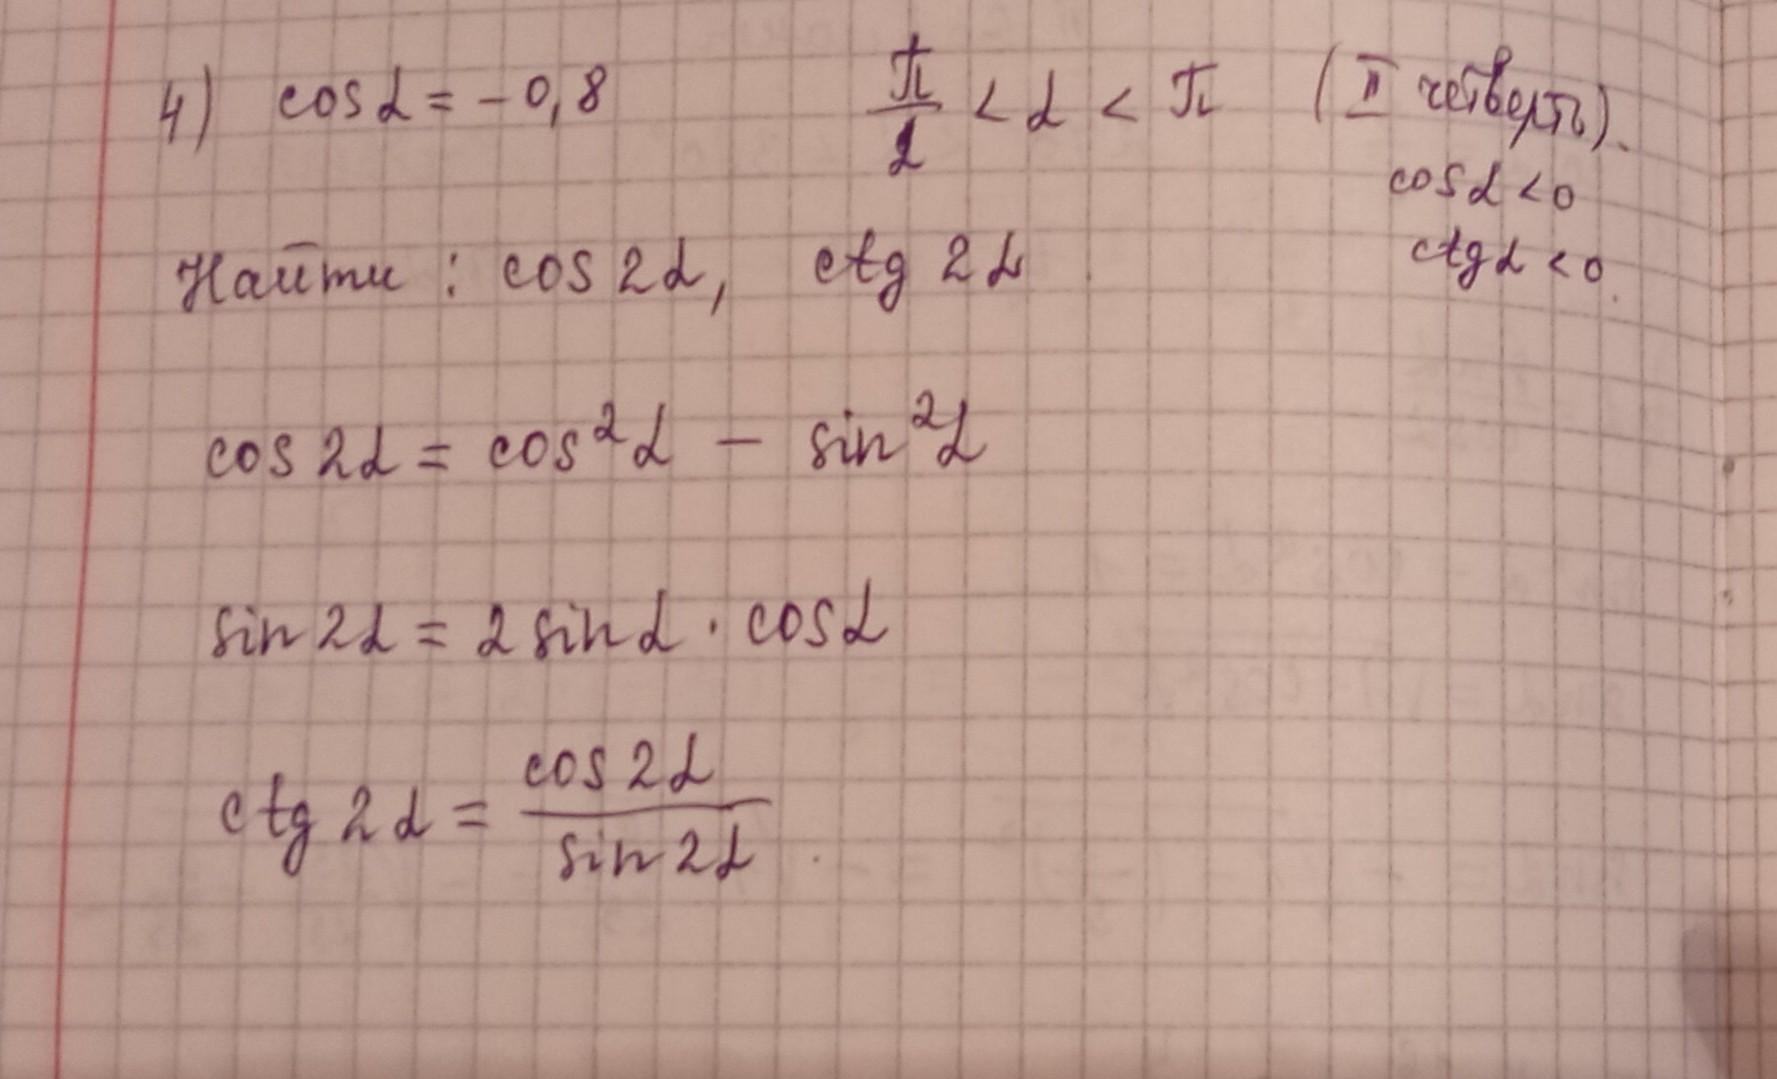 4) cos α = -0,8   π/2 < α < π   (II четверть).
cos α < 0
ctg α < 0.
Найти : cos 2α, ctg 2α
cos 2α = cos²α - sin²α
sin 2α = 2 sin α · cos α
ctg 2α = cos 2α / sin 2α .